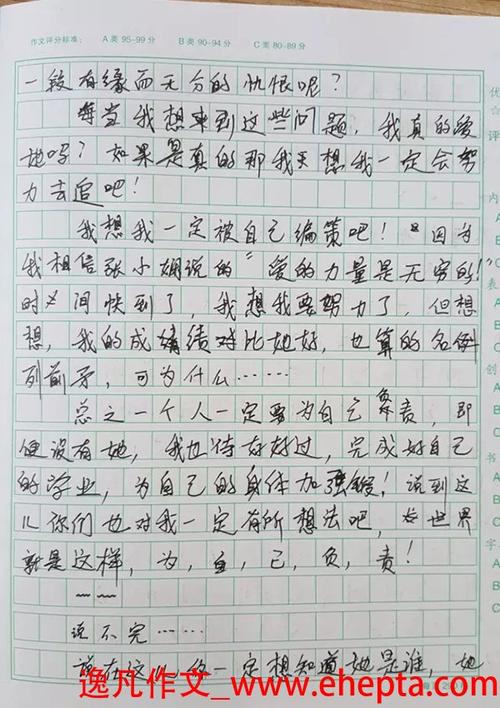 作文评分标准： A类 95-99分 B类 90-94分 C类 80-89分
一段有缘而无分的仇恨呢？
每当我想来到这些问题，我真的爱
她吗？如果是真的那我天想我一定会努
力去追吧！
我想我一定被自己编策吧！“因为
我相信张小娴说的”爱的力量是无穷的！
时间快到了，我想我要努力了，但想
想，我的成绩对比她好，也算的名例
列前矛，可为什么……
总之一个人一定要为自己负责，即
便没有她，我也待好好过，完成好自己
的学业，为自己的身体加强锻！说到这
儿你们也对我一定有所想法吧，世界
就是这样，为，自，己，负，责！
~~
说不完……
说在这儿，你一定想知道她是谁，她
优
☆
评
内
A
B
C
表
A
B
C
创
A
B
C
书
A
B
C
字
A
B
C
逸凡作文_www.ehepta.com